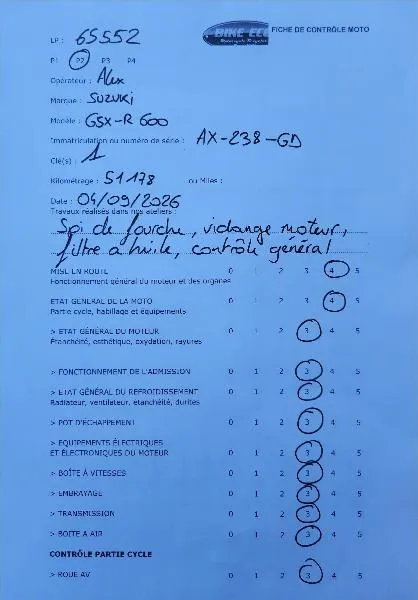 BIKE ECO FICHE DE CONTRÔLE MOTO
LP : 65552
P1 P2 P3 P4
Opérateur : Alex
Marque : SUZUKI
Modèle : GSX-R 600
Immatriculation ou numéro de série : AX-238-GD
Clé(s) : 1
Kilométrage : 51178 ou Miles :
Date : 04/09/2026
Travaux réalisés dans nos ateliers :
Spi de fourche, vidange moteur,
filtre a huile, contrôle général
MISE EN ROUTE 0 1 2 3 4 5
Fonctionnement général du moteur et des organes
ETAT GENERAL DE LA MOTO 0 1 2 3 4 5
Partie cycle, habillage et équipements
> ETAT GÉNÉRAL DU MOTEUR 0 1 2 3 4 5
Étanchéité, esthétique, oxydation, rayures
> FONCTIONNEMENT DE L'ADMISSION 0 1 2 3 4 5
> ETAT GÉNÉRAL DU REFROIDISSEMENT 0 1 2 3 4 5
Radiateur, ventilateur, etanchéité, durites
> POT D'ÉCHAPPEMENT 0 1 2 3 4 5
> EQUIPEMENTS ÉLECTRIQUES
ET ÉLECTRONIQUES DU MOTEUR 0 1 2 3 4 5
> BOÎTE À VITESSES 0 1 2 3 4 5
> EMBRAYAGE 0 1 2 3 4 5
> TRANSMISSION 0 1 2 3 4 5
> BOITE A AIR 0 1 2 3 4 5
CONTRÔLE PARTIE CYCLE
> ROUE AV 0 1 2 3 4 5